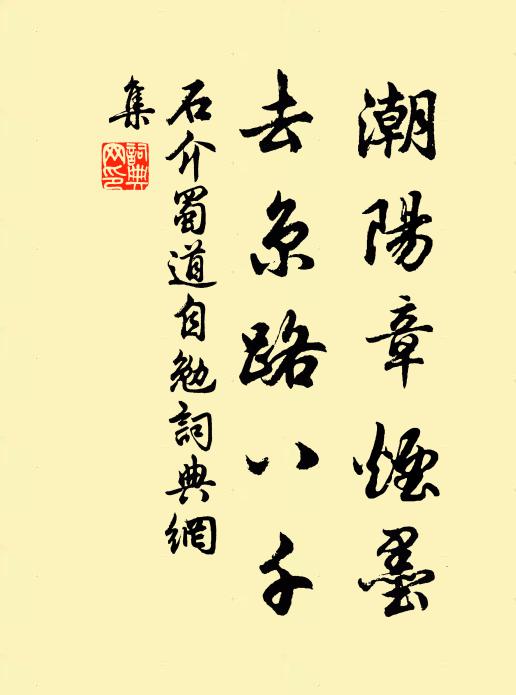 潮陽章煙墨
去京路八千
石介蜀道自勉詞典網
集
詞典網印